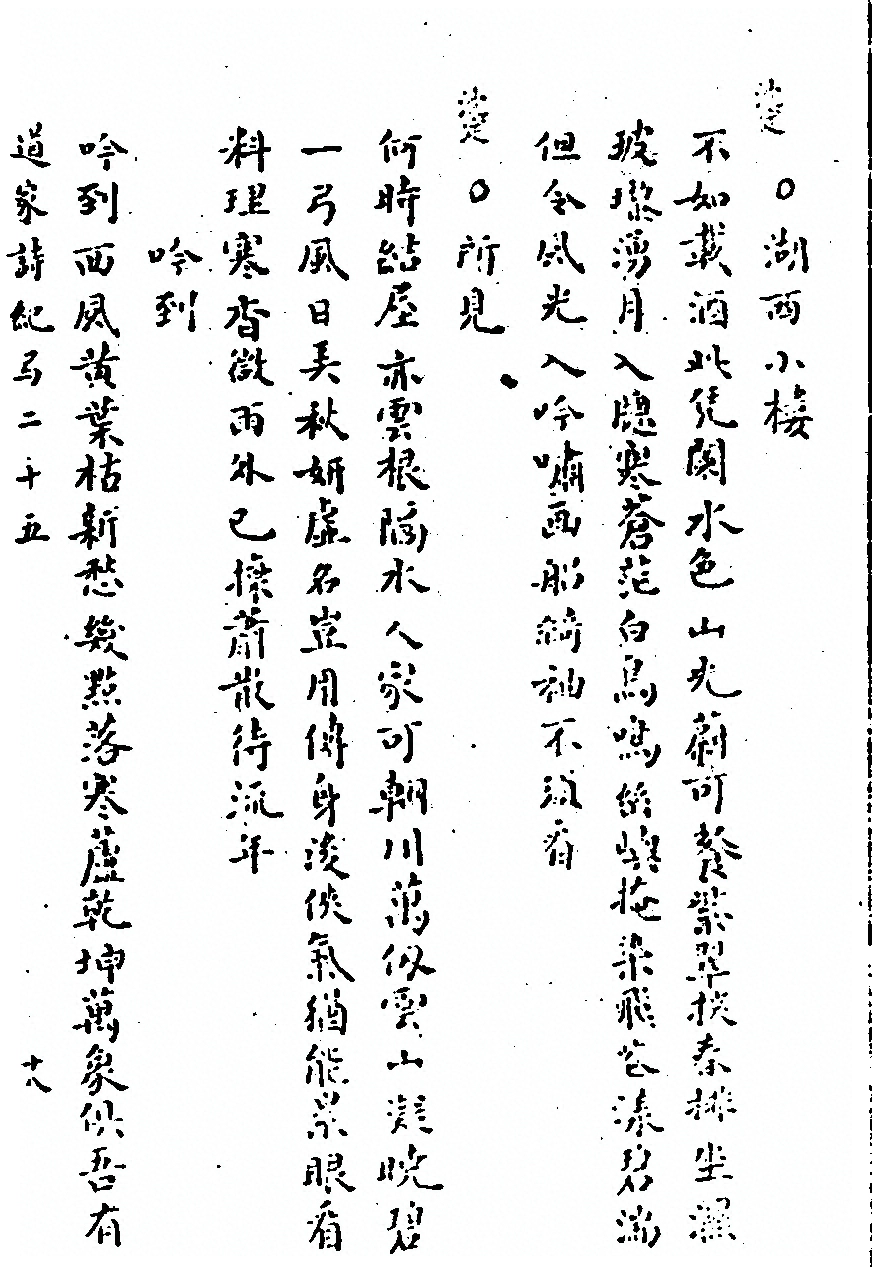 ○湖西小樓
不如載酒此凭闌水色山光翦可餐縈翠撲奏排坐濕
玻瓈湧月入牕寒蒼茫白鳥鳴絲嶼掩染飛花漾碧湍
但令風光入吟嘯画船綺袖不須看
○所見
何時結屋亦雲根隔水人家可輞川萬仭雲山凝曉碧
一弓風日美秋妍虛名豈用傳身後俠氣猶能累眼看
料理寒香微雨外已擽蕭散待流年
吟到
吟到西風黃葉枯新愁幾點落寒蘆乾坤萬象供吾有
道家詩紀弓二十五
十八